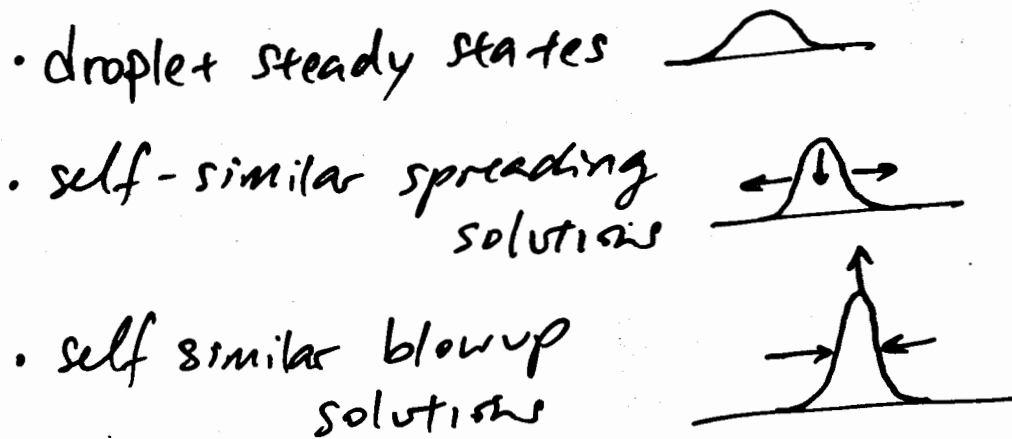 · droplet steady states
· self-similar spreading
solutions
· self similar blowup
solutions